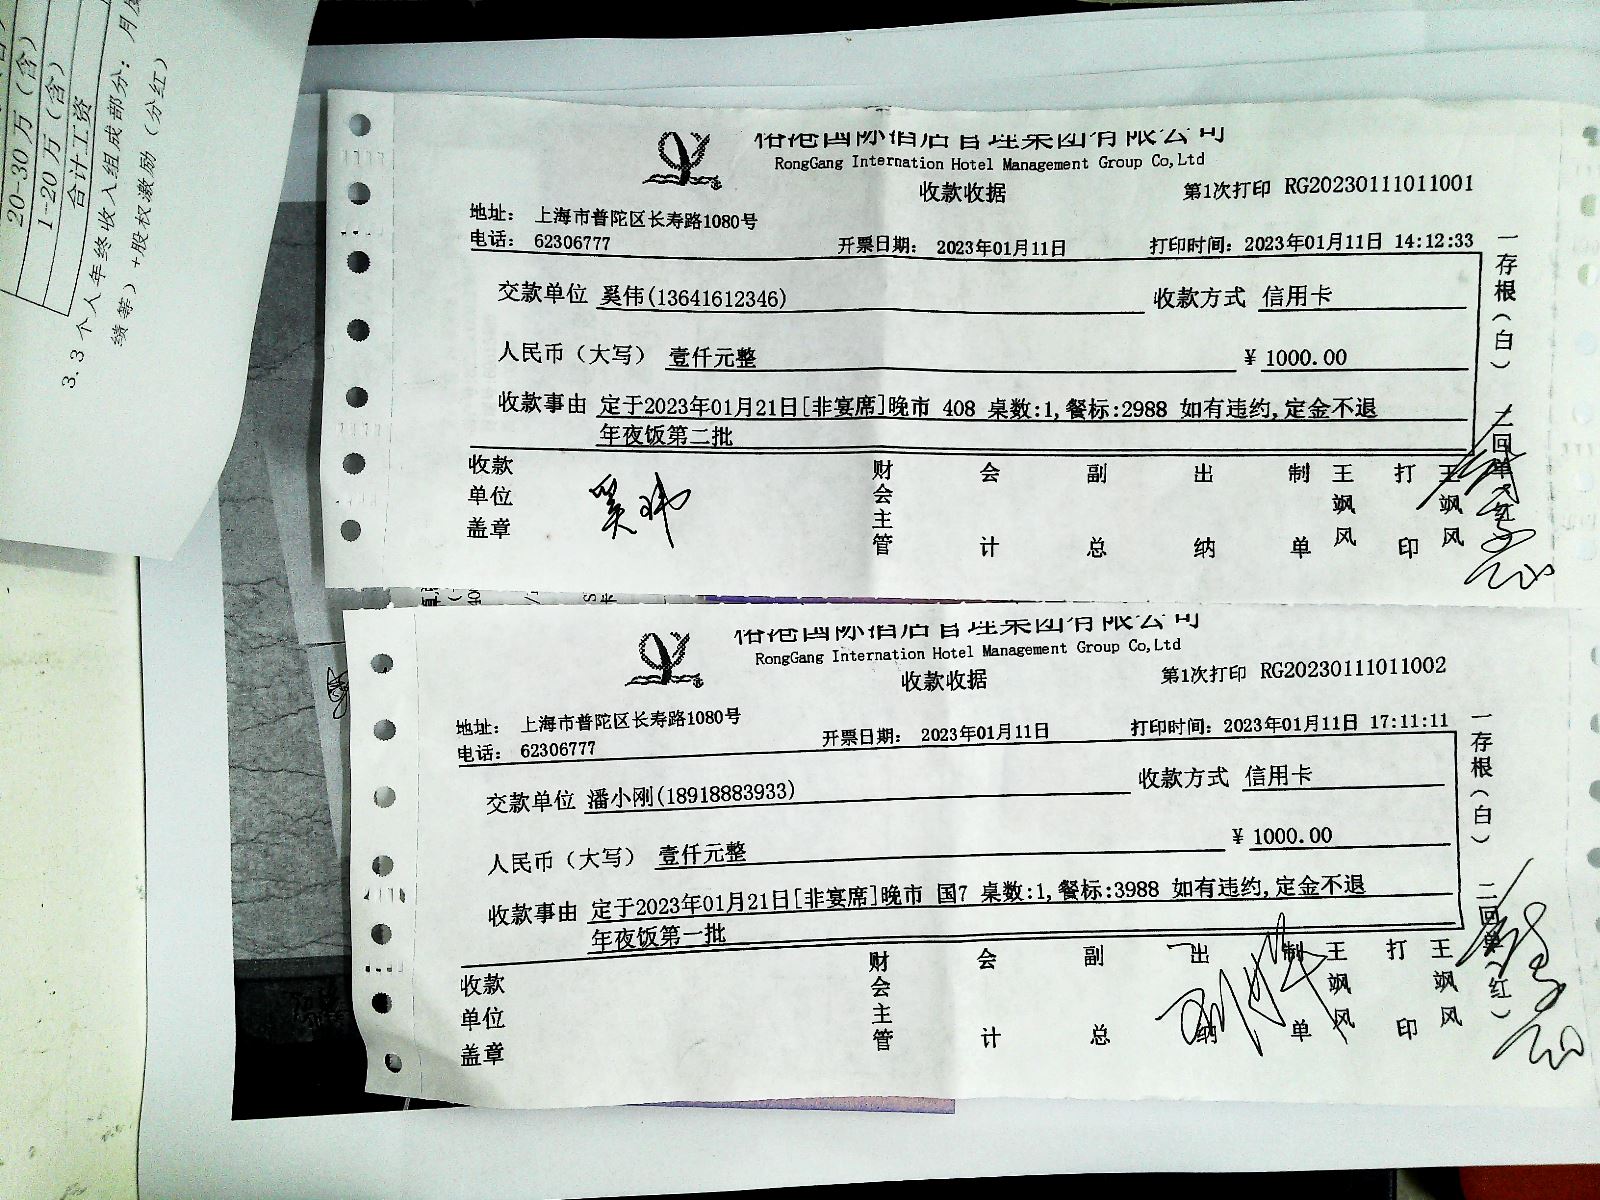 20-30万(含)
1-20万(含)
合计工资
3.3 个人年终收入组成部分：月度
绩等）+股权激励（分红）
榕港国际酒店管理集团有限公司
RongGang Internation Hotel Management Group Co,Ltd
收款收据
第1次打印 RG20230111011001
地址： 上海市普陀区长寿路1080号
电话： 62306777
开票日期： 2023年01月11日
打印时间：2023年01月11日 14:12:33
交款单位 奚伟(13641612346)
收款方式 信用卡
人民币（大写） 壹仟元整
¥ 1000.00
收款事由 定于2023年01月21日[非宴席]晚市 408 桌数:1,餐标:2988 如有违约,定金不退
年夜饭第二批
收款单位盖章
奚玮
财会主管
会计
副总
出纳
制单
王飒风
打印
王飒风
一存根(白)
二回单(红)
榕港国际酒店管理集团有限公司
RongGang Internation Hotel Management Group Co,Ltd
收款收据
第1次打印 RG20230111011002
地址： 上海市普陀区长寿路1080号
电话： 62306777
开票日期： 2023年01月11日
打印时间：2023年01月11日 17:11:11
交款单位 潘小刚(18918883933)
收款方式 信用卡
人民币（大写） 壹仟元整
¥ 1000.00
收款事由 定于2023年01月21日[非宴席]晚市 国7 桌数:1,餐标:3988 如有违约,定金不退
年夜饭第一批
收款单位盖章
财会主管
会计
副总
出纳
制单
王飒风
打印
王飒风
一存根(白)
二回单(红)